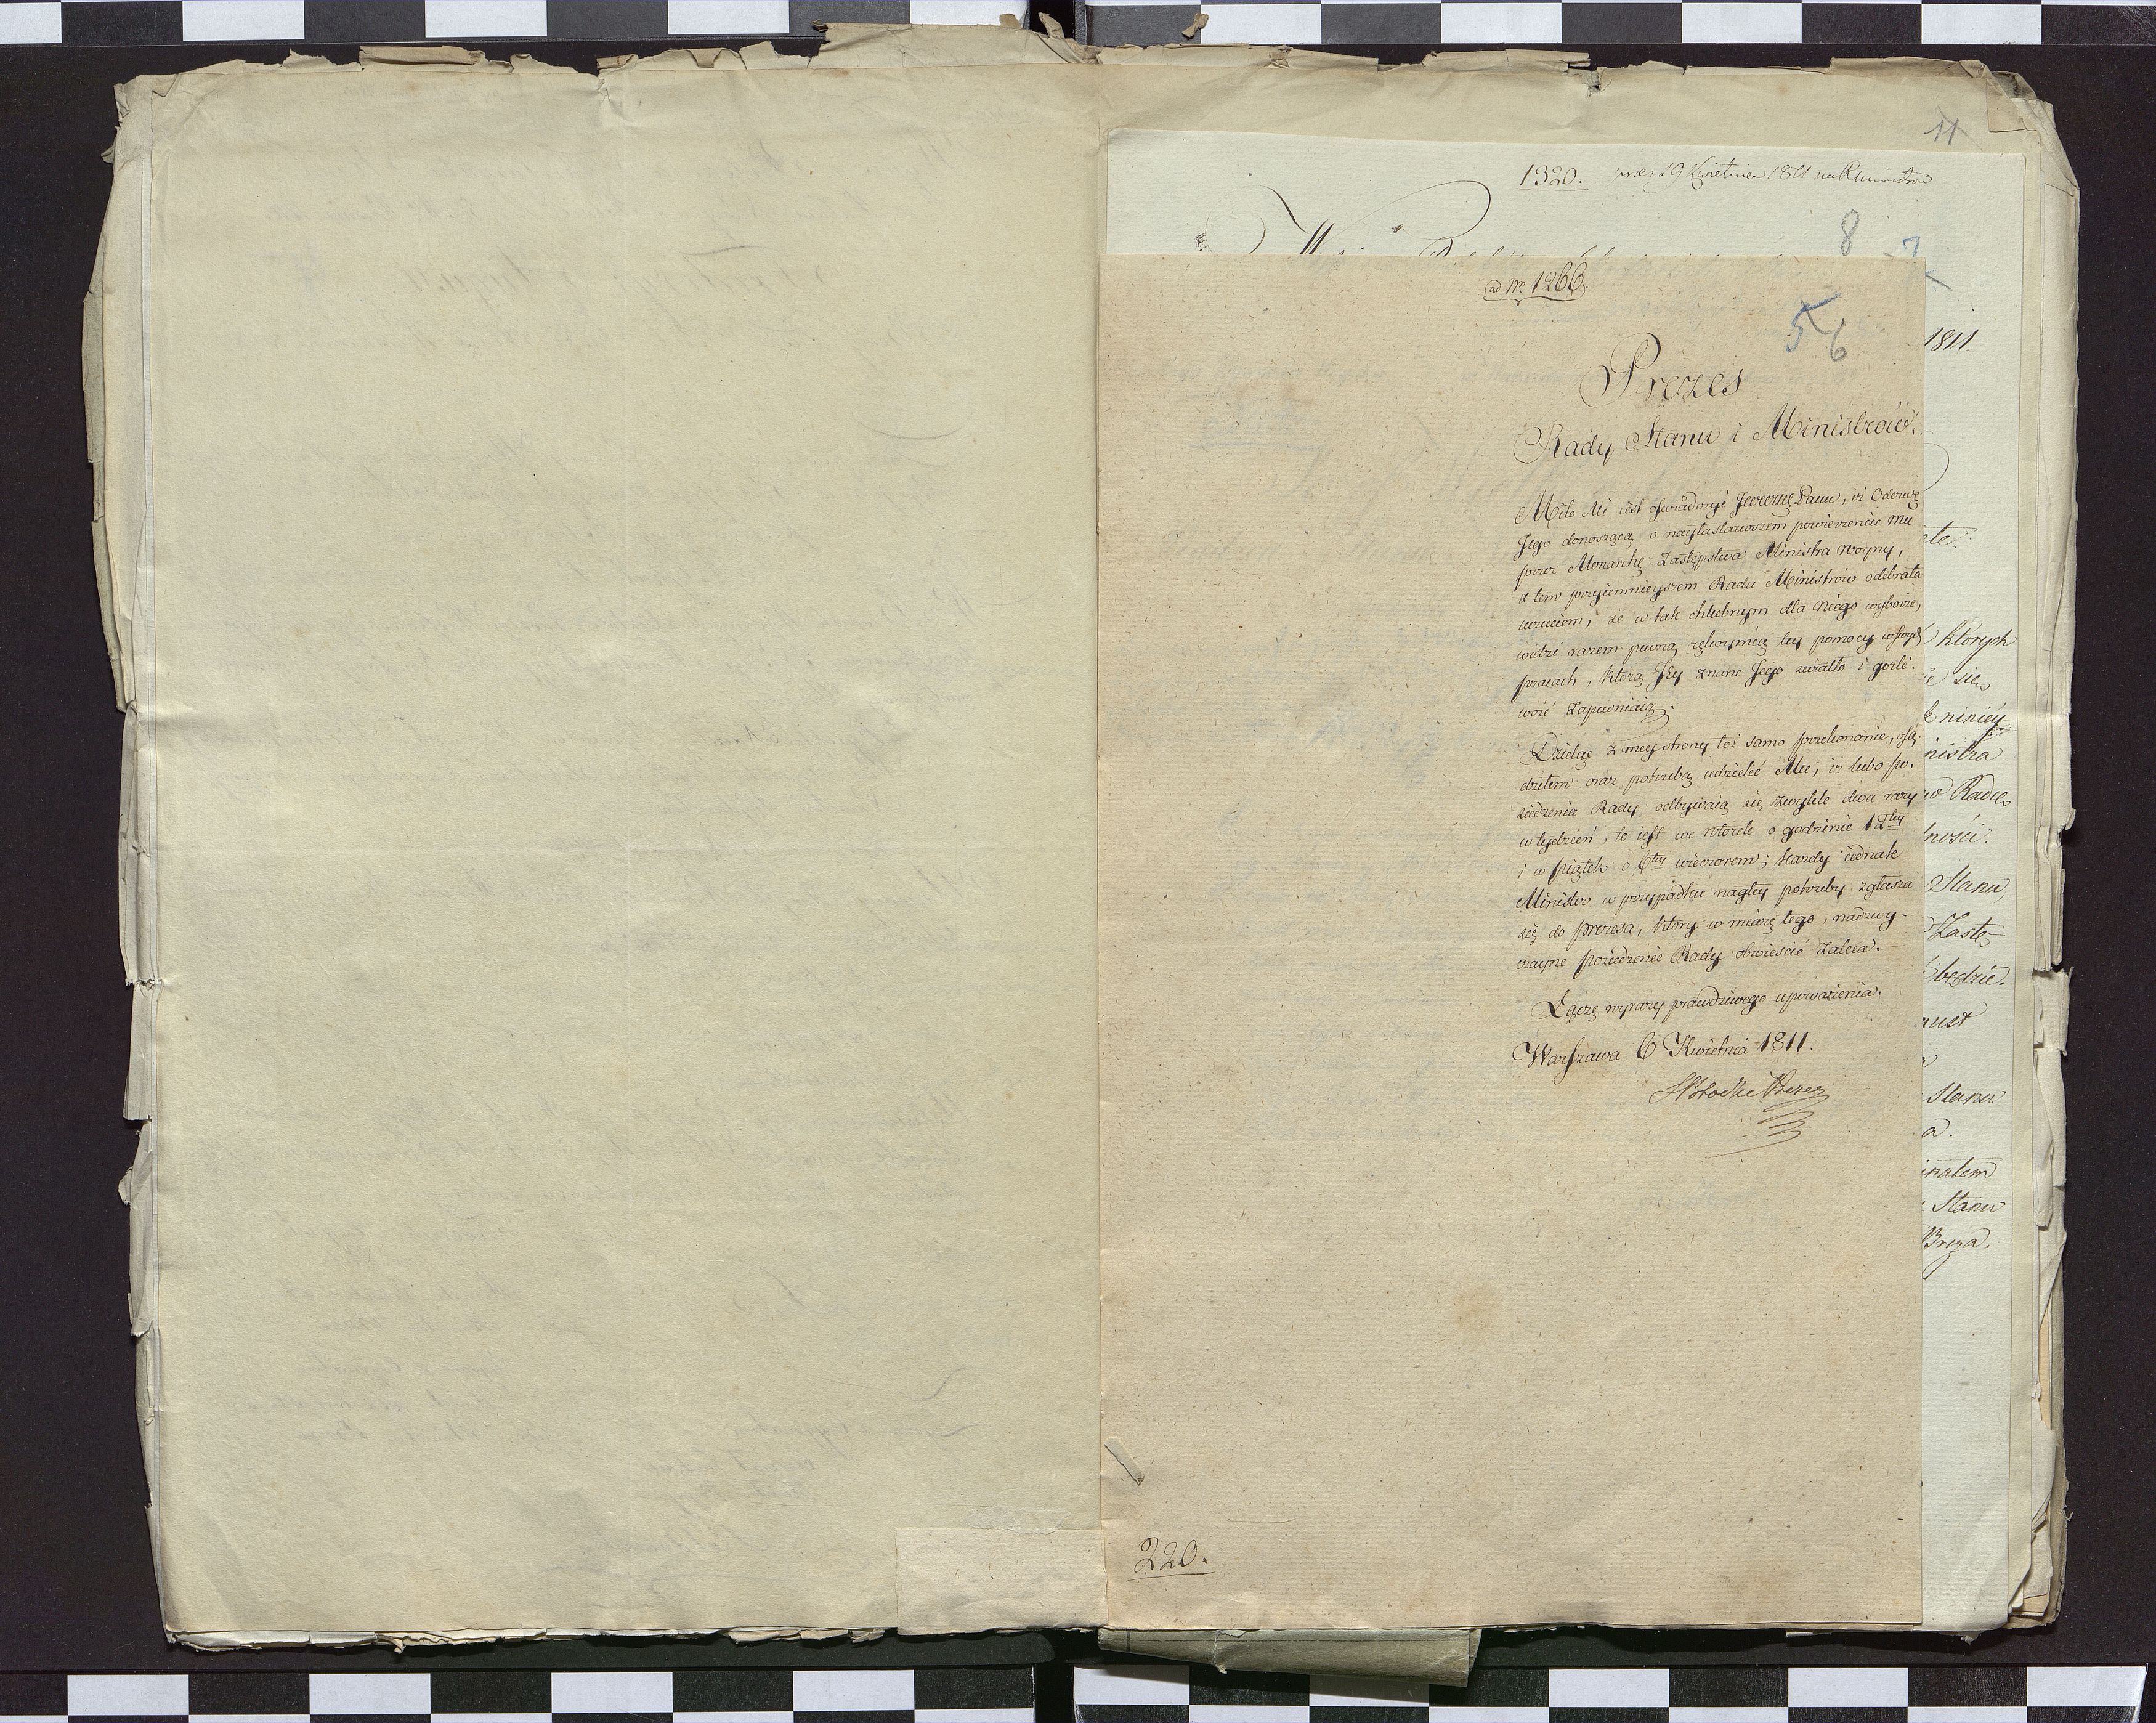 11
1320. prez 9 Kwietnia 1811
8 7
ad Nr. 1266.
5 6
Prezes
Rady Stanu i Ministrów.
Miło Mi iest oświadczyć JWWmć Panu, iż Odezwę
Jego donoszącą o nayłaskawszem powierzeniu Mu
przez Monarchę Zastępstwa Ministra Woyny,
z tem przyiemnieyszem Rada Ministrów odebrała
uczuciem, że w tak chlubnym dla Niego wyborze,
widzi razem pewną rękoymią tey pomocy w swych
pracach, którą Jey znane Jego światło i gorli-
wość zapewniaią.
Dzieląc z mey strony toż samo przekonanie, osą-
dziłem oraz potrzebą udzielić Mu, iż lubo po-
siedzenia Rady odbywaią się zwykle dwa razy
w tydzień, to iest we Wtorek o godzinie 12tey
i w piątek o 6tey wieczorem; każdy iednak
Minister w przypadku nagłey potrzeby zgłasza
się do prezesa, który w miarę tego, nadzwy-
czayne posiedzenie Rady obwieścić zaleca.
Łączę wyrazy prawdziwego upoważenia.
Warszawa 6 Kwietnia 1811.
St Potocki Prezes
220.
1811.
których
niniey
nistra
Radu
ności.
Stanu,
Zastę-
będzie.
Stanu
a.
inałem
Stanu
Breza.